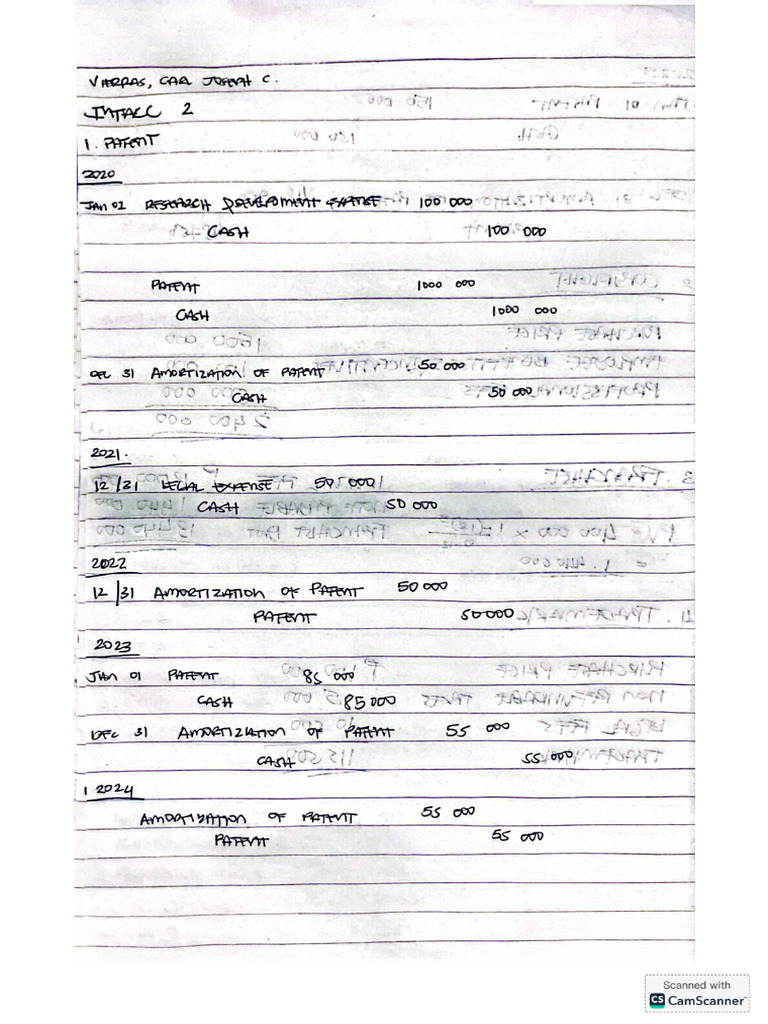 VIERRAS, CARL JOSEPH C.
INTACC 2
1. PATENT
2020
JAN 02 RESEARCH DEVELOPMENT EXPENSE 100 000
CASH 100 000
PATENT 1000 000
CASH 1000 000
DEC 31 AMORTIZATION OF PATENT 50 000
CASH 50 000
2021.
12/31 LEGAL EXPENSE 50 000
CASH 50 000
2022
12/31 AMORTIZATION OF PATENT 50 000
PATENT 50 000
2023
JAN 01 PATENT 85 000
CASH 85 000
DEC 31 AMORTIZATION OF PATENT 55 000
CASH 55 000
2024
AMORTIZATION OF PATENT 55 000
PATENT 55 000
Scanned with
CS CamScanner